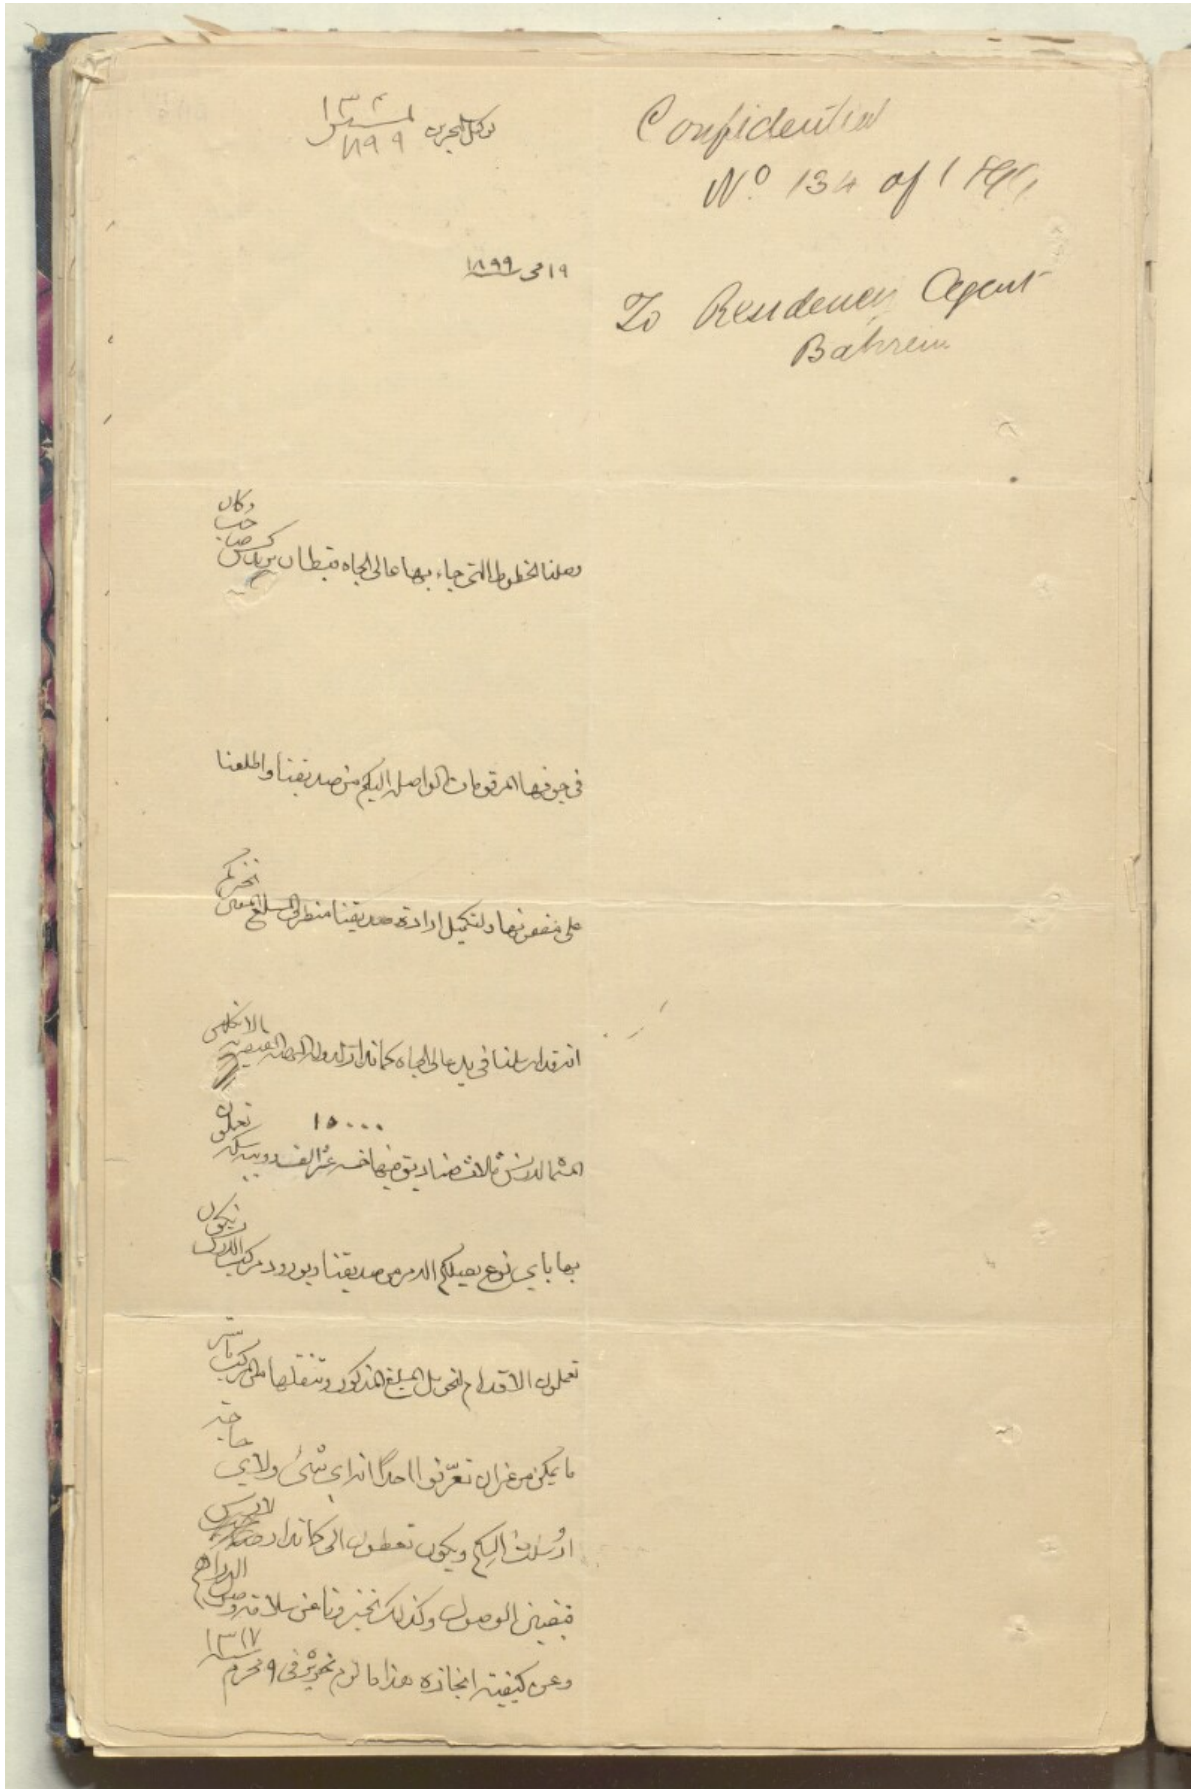 Confidential
No 134 of 1899
To Residency Agent
Bahrein
١٣٤
١٨٩٩
١٩ مى ١٨٩٩
وصلنا الخطوط التى جاء بها عالى الجاه قبطان صاحب وكان
فى جوفها المرقومات الواصله اليكم من صديقنا واطلعنا
على مضمونها ولتكميل ارادة صديقنا منطرف المبلغ نخبركم
انه قد ارسلنا فى يد عالى الجاه كماندار الدولة البهية القيصرية الانكليس
١٥٠٠٠
ثلاث صناديق فيها خمسة عشر الف روبيه سكه تعملون
بها باي نوع يصلكم الامر من صديقنا وبورود مركب لارنس تكون
تعملون الاقدام لتحويل المبلغ المذكور وتنقلها من المركب
ما يمكن من غير ان تعرّفوا احدًا انه اي شىء ولاي حاجة
ارُسلت اليكم ويكون تعطون الى كماندار لارنس
قبض الوصول وكذلك تخبرونا عن سلامة وصول الدراهم
وعن كيفية انجازه هذا ما لزم تحريره فى ٩ محرم ١٣١٧